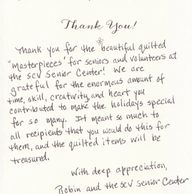 Thank You!
Thank you for the beautiful quilted
"masterpieces" for seniors and volunteers at
the SCV Senior Center! We are
grateful for the enormous amount of
time, skill, creativity and heart you
contributed to make the holidays special
for so many. It meant so much to
all recipients that you would do this for
them, and the quilted items will be
treasured.
With deep appreciation,
Robin and the SCV Senior Center